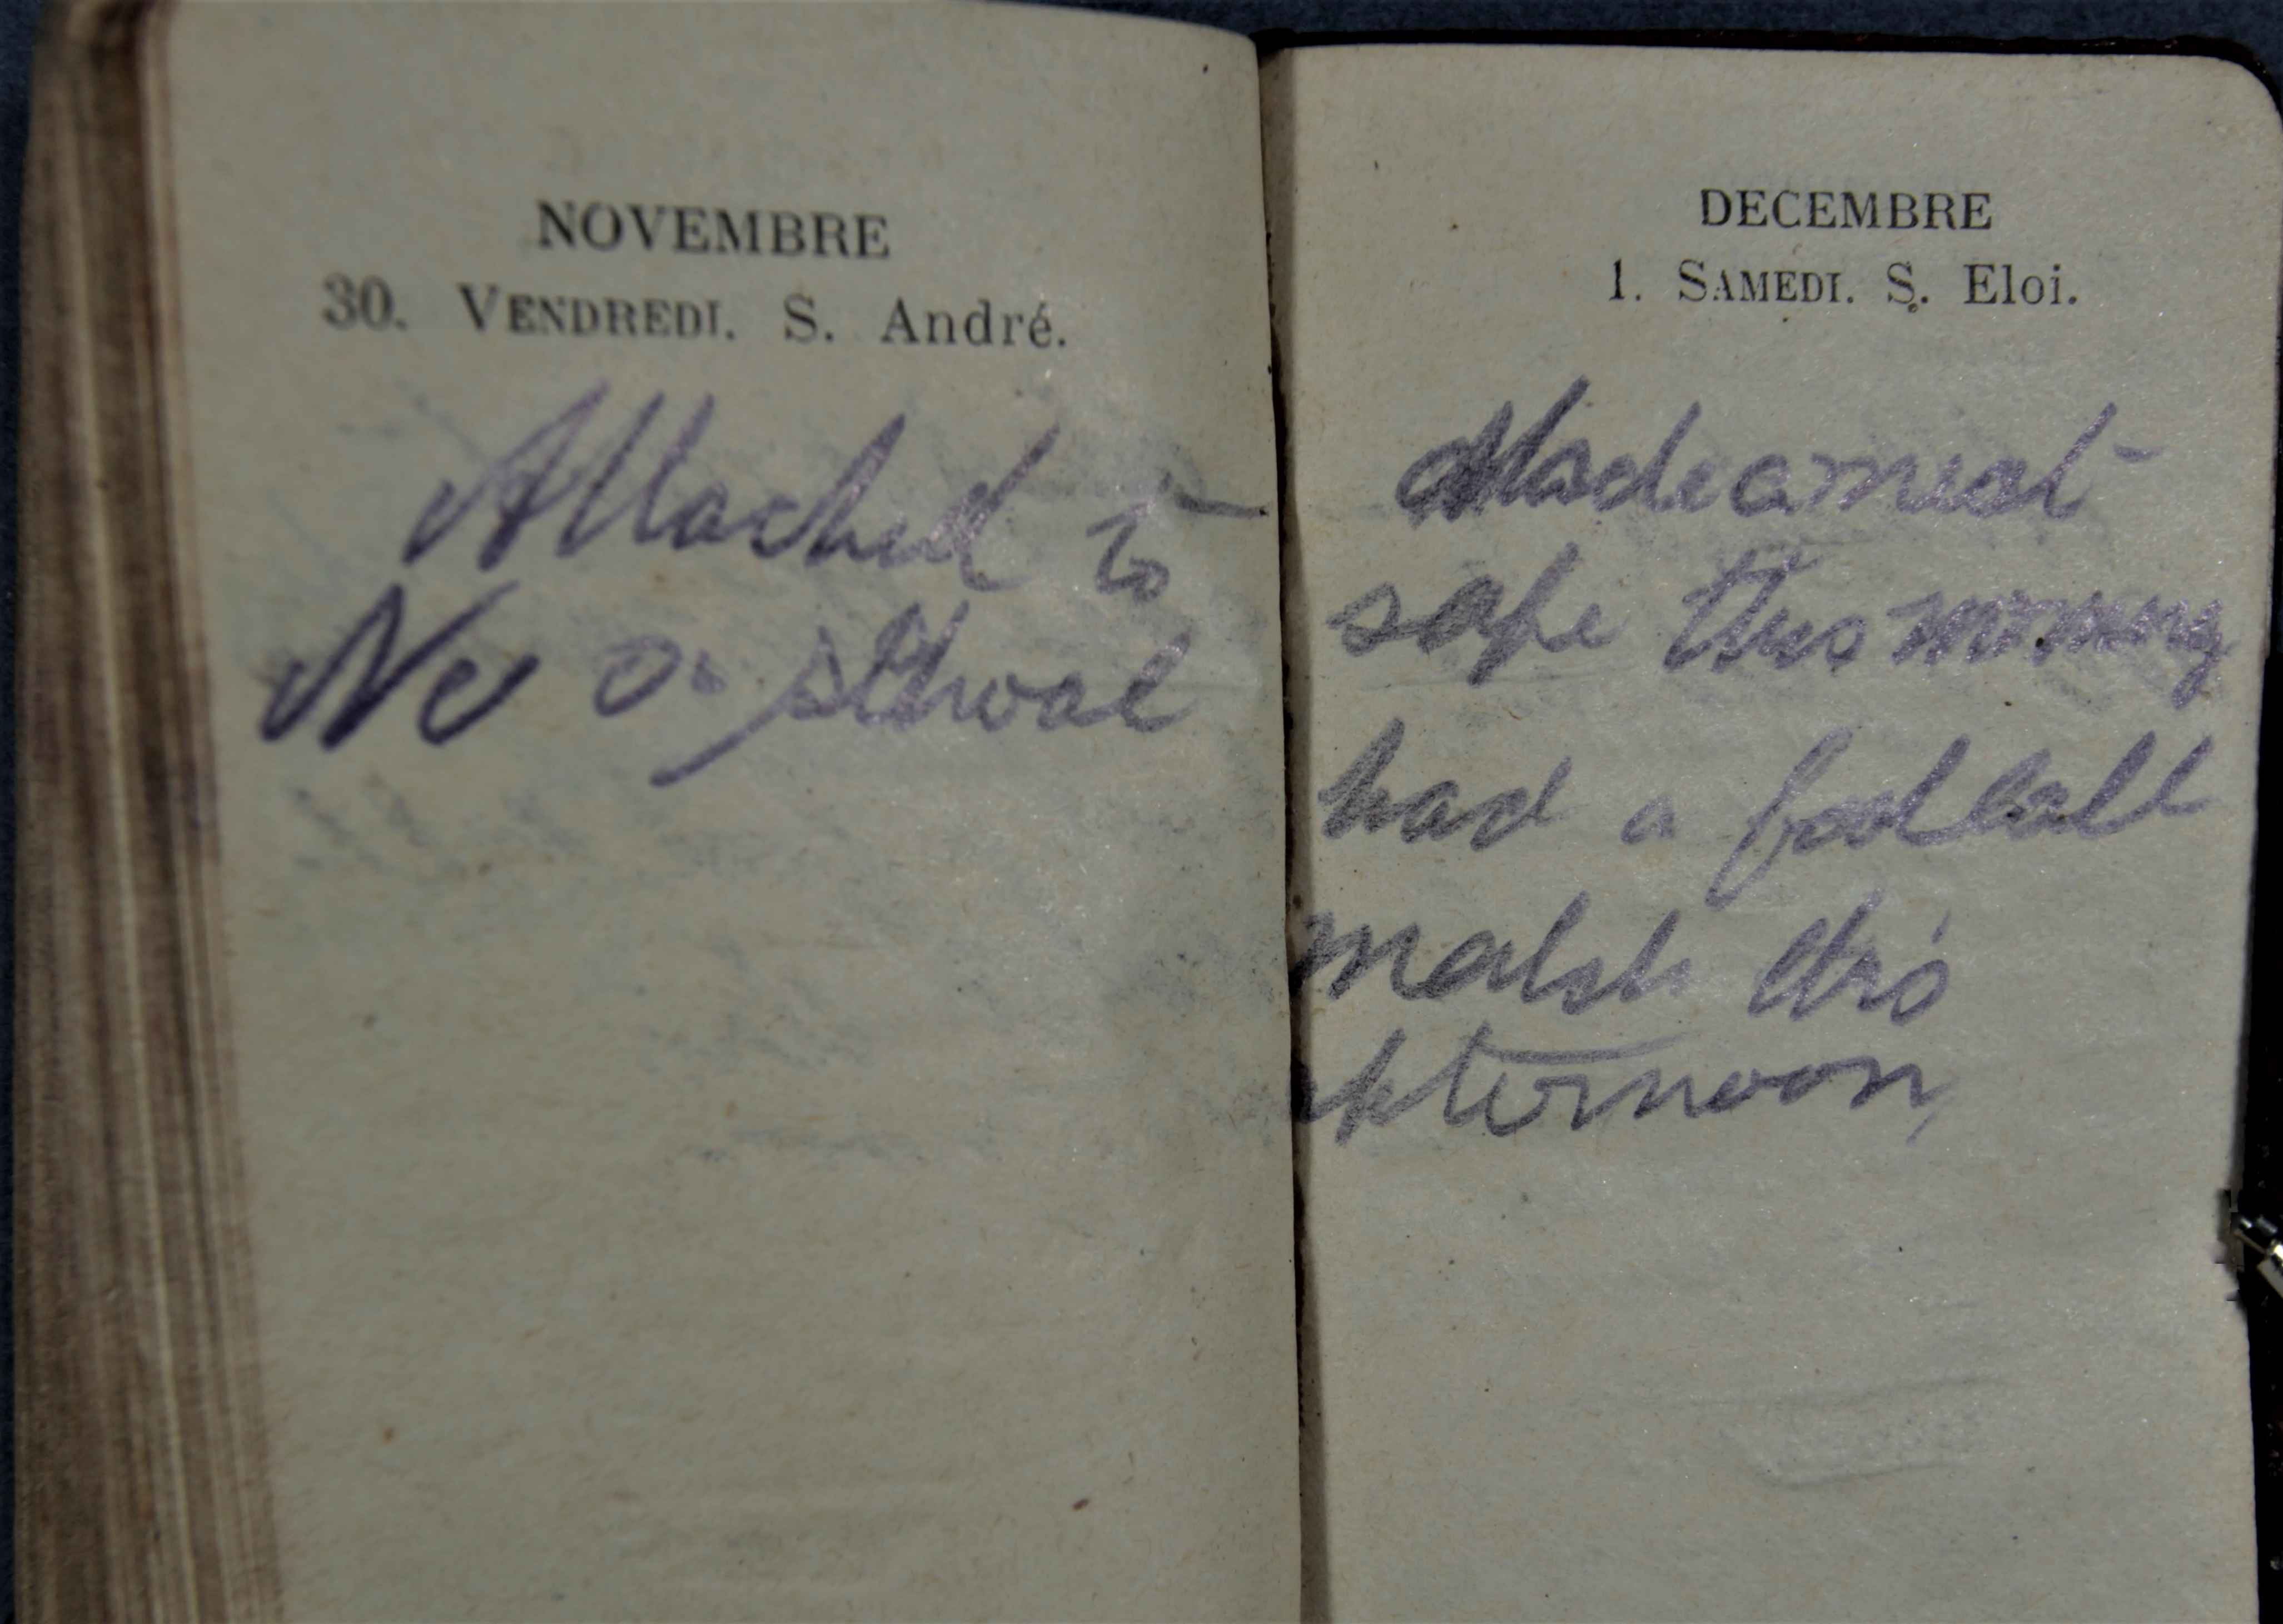 NOVEMBRE
30. VENDREDI. S. André.
Attached to
school
DECEMBRE
1. SAMEDI. S. Eloi.
Made a meat
safe this morning
had a foot ball
match this
afternoon,